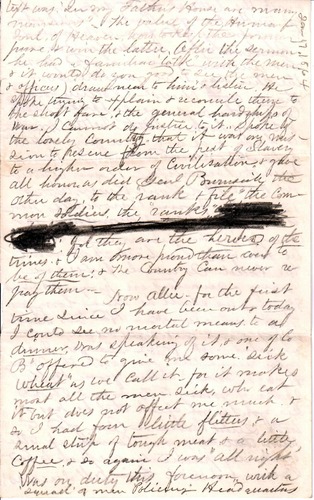 Jan 17 1864
text was. In my Fathers House are many
mansions" & the value of the Human
Soul, of Heaven, how to the
& win the latter, after the sermon
he had a familiar talk with the men
& it would do you good to see the men
& officers) draw near to him & listen. He
is trying to explain & reconcile them to
the short fare, & the general hardships of
War. I cannot do justice to it. Spoke of
the lovely Country that it was our mis-
sion to rescue from the pest of Slavery
to a higher order of Civilisation, & gave
all honor as did Genl the
other day, to the rank & file" the Com-
mon soldiers, the ranks
for they are the heroes of the
times. & I am more proud than ever to
be of them, & the Country can never re
pay them—
Now Allie - for the first
time since I have been out, today
I could see no mortal means to a
dinner, was speaking of it, & one of Co
B" offered to give me some. Sick
Wheat" as we call it - for it makes
most all the men sick, who eat
it but does not affect me much, &
so I had four little flitters & a
small strip of tough meat & a little
coffee & so again I was all right
was on duty this forenoon, with a
squad of men Policing Headquarters